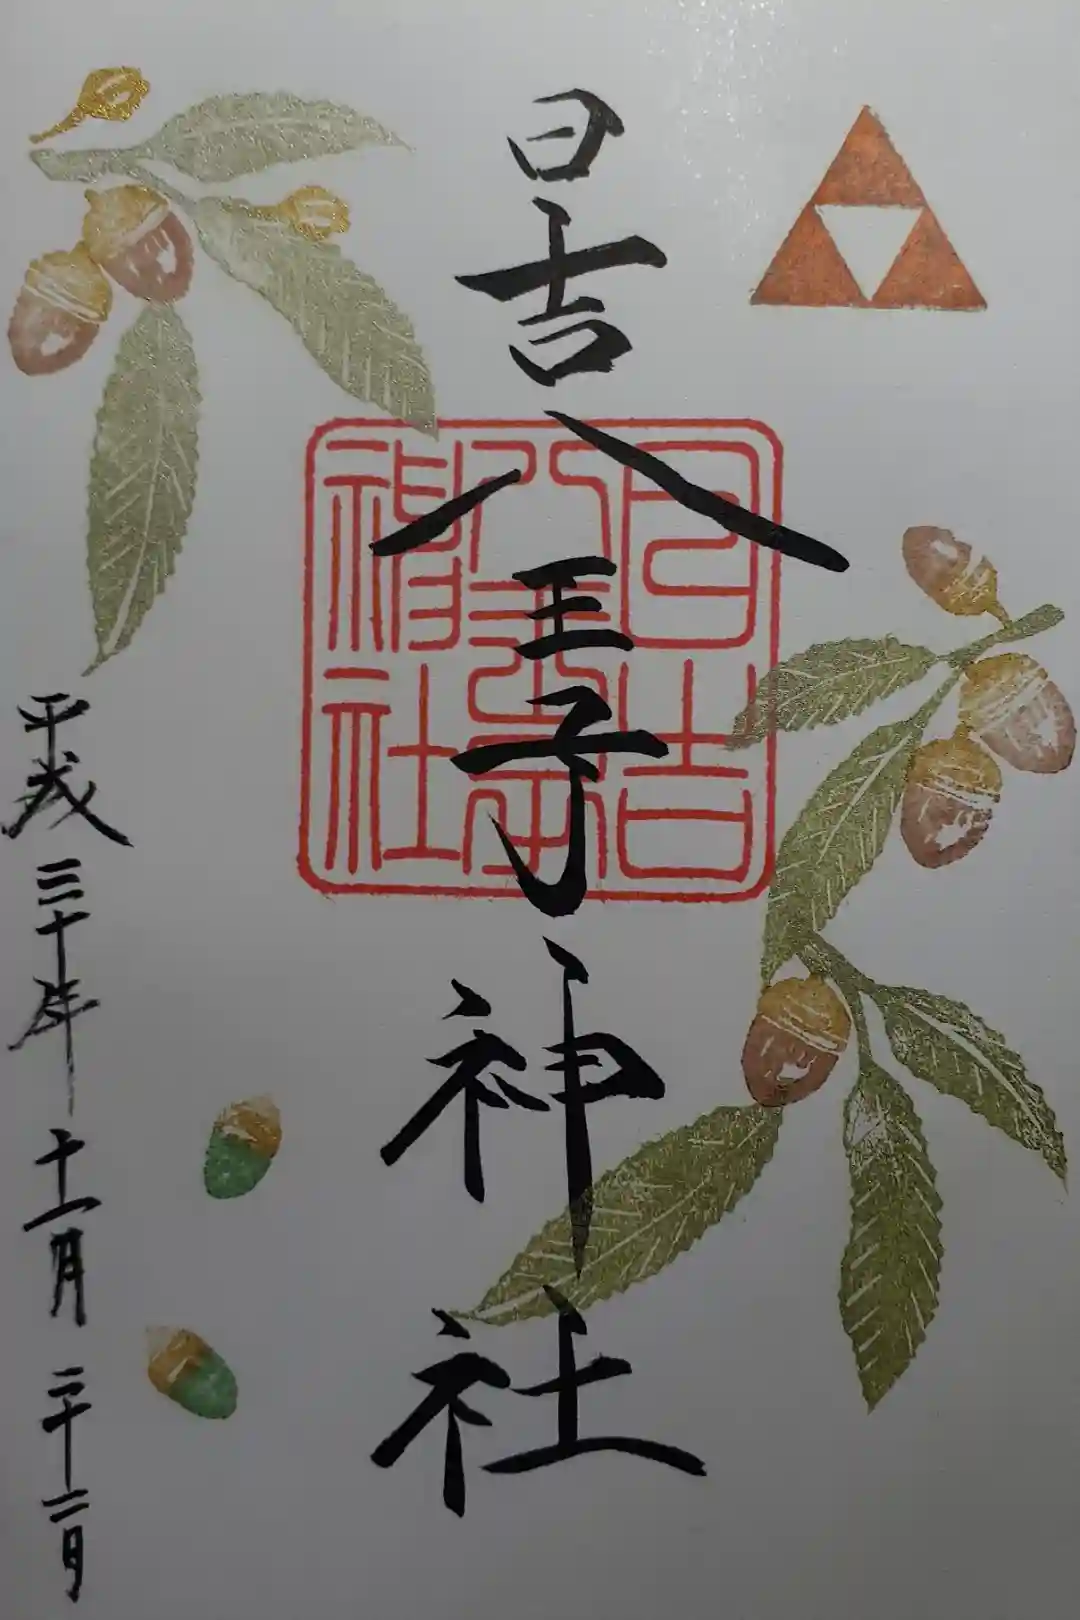 日吉八王子神社
日吉八王子神社
平成三十年十一月二十二日